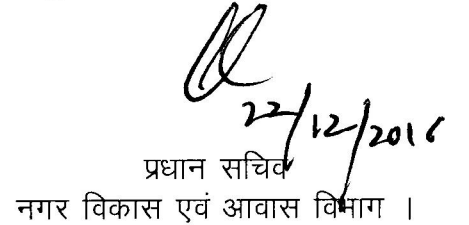 22/12/2016
प्रधान सचिव
नगर विकास एवं आवास विभाग ।